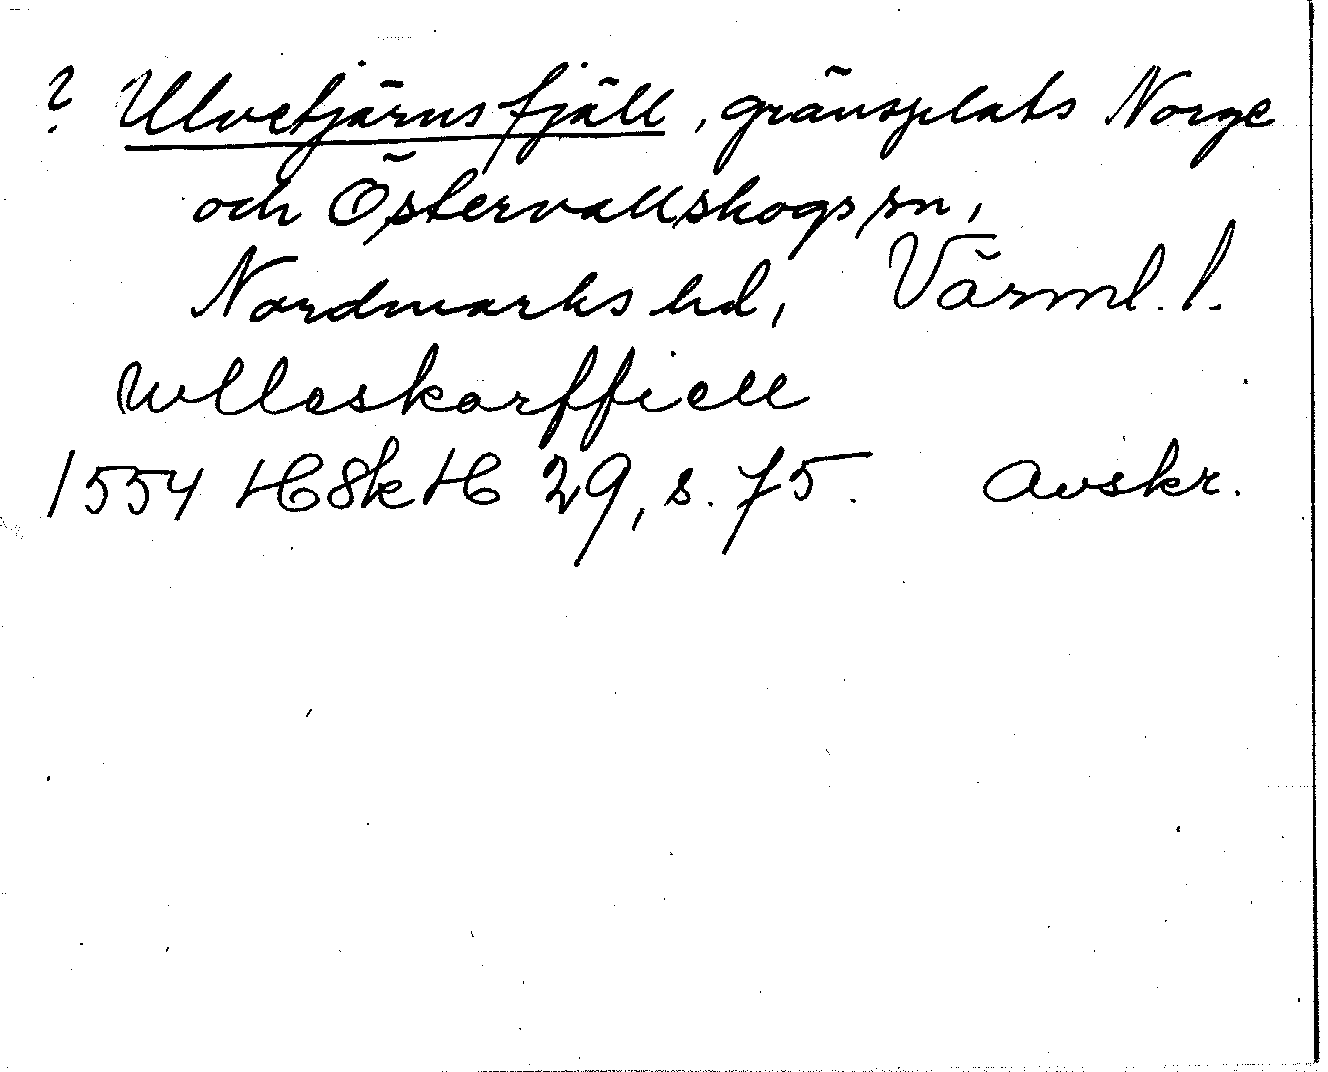 ? Ulvetjärnsfjäll, gränsplats Norge
och Östervallskogs sn,
Nordmarks hd, Värml. l.
Wlleskarffiell
1554 HSkH 29, s. 75. Avskr.